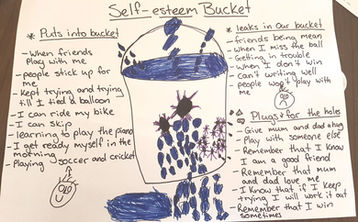 Self-esteem Bucket
* Puts into bucket
- When friends
Play with me
- people stick up for
me
- Kept trying and trying
till I tied a balloon
- I can ride my bike
- I can Skip
- learning to play the piano
- I get ready myself in the
morning
- Playing soccer and cricket
* leaks in our bucket
- friends being mean
- When I miss the ball
- Getting in trouble
- When I don't win
- Can't writing well
- people won't play with
me
* Plugs for the holes
- Give mum and dad a hug
- Play with someone else
- Remember that I know
I am a good friend
- Remember that mum
and dad love me
- I know that if I keep
trying I will work it out
- Remember that I win
sometimes